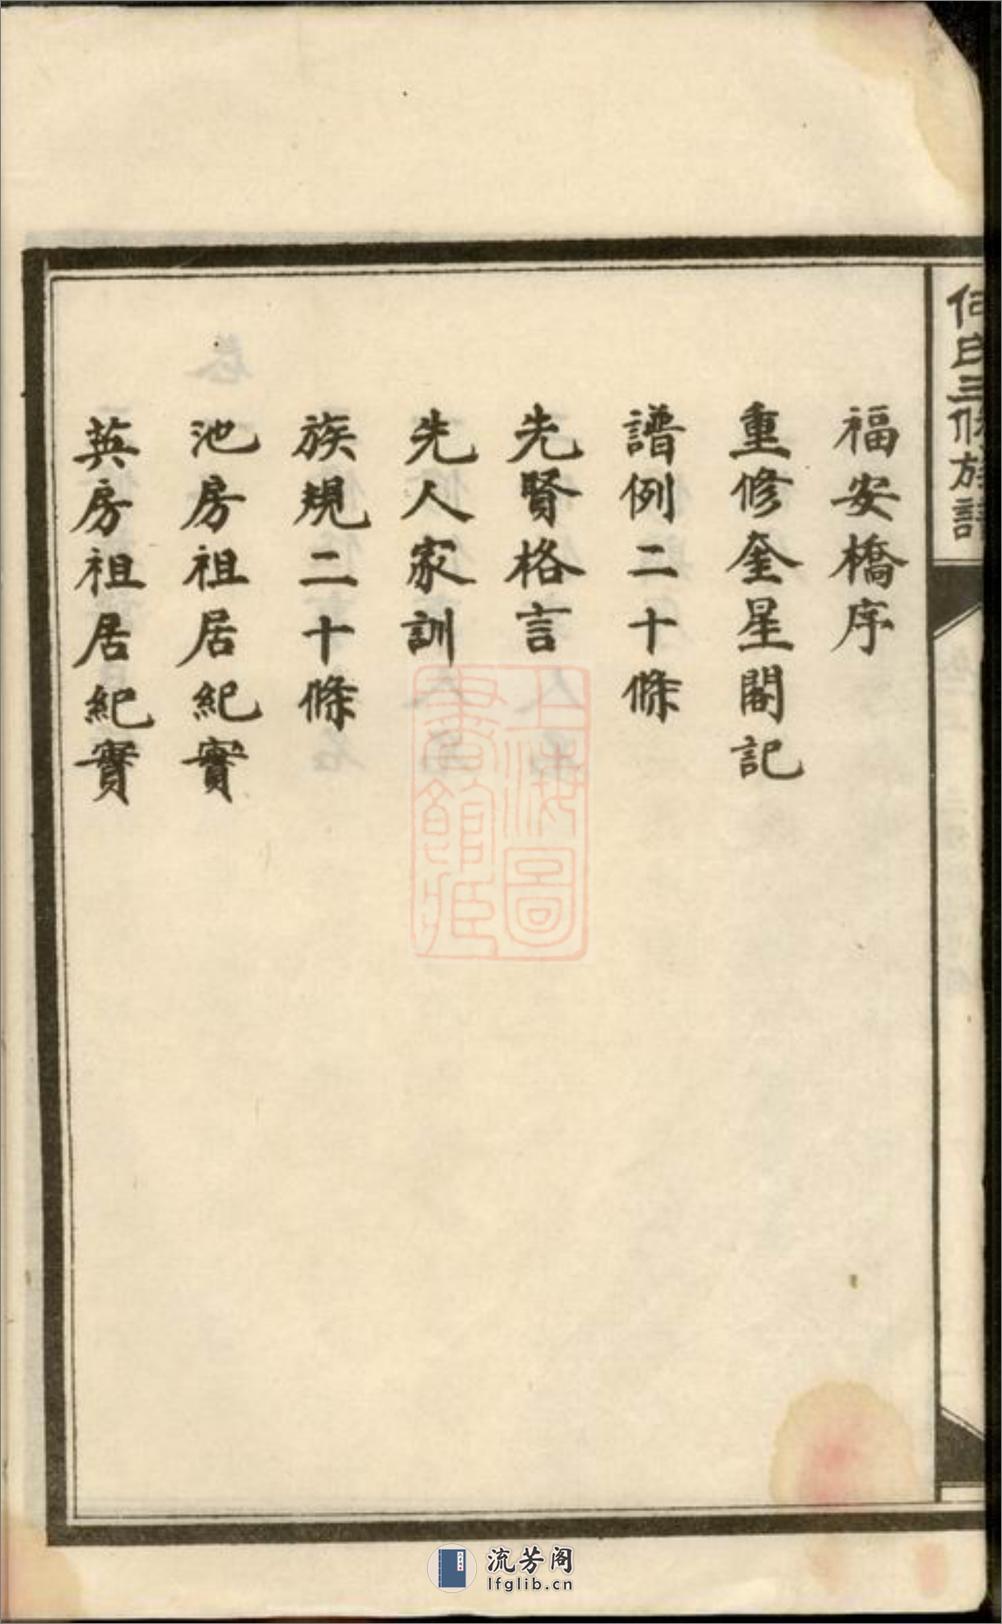 何氏三修族譜
福安橋序
重修奎星閣記
譜例二十條
先賢格言
先人家訓
族規二十條
池房祖居紀實
英房祖居紀實
上海圖
書館藏
流芳阁
lfglib.cn